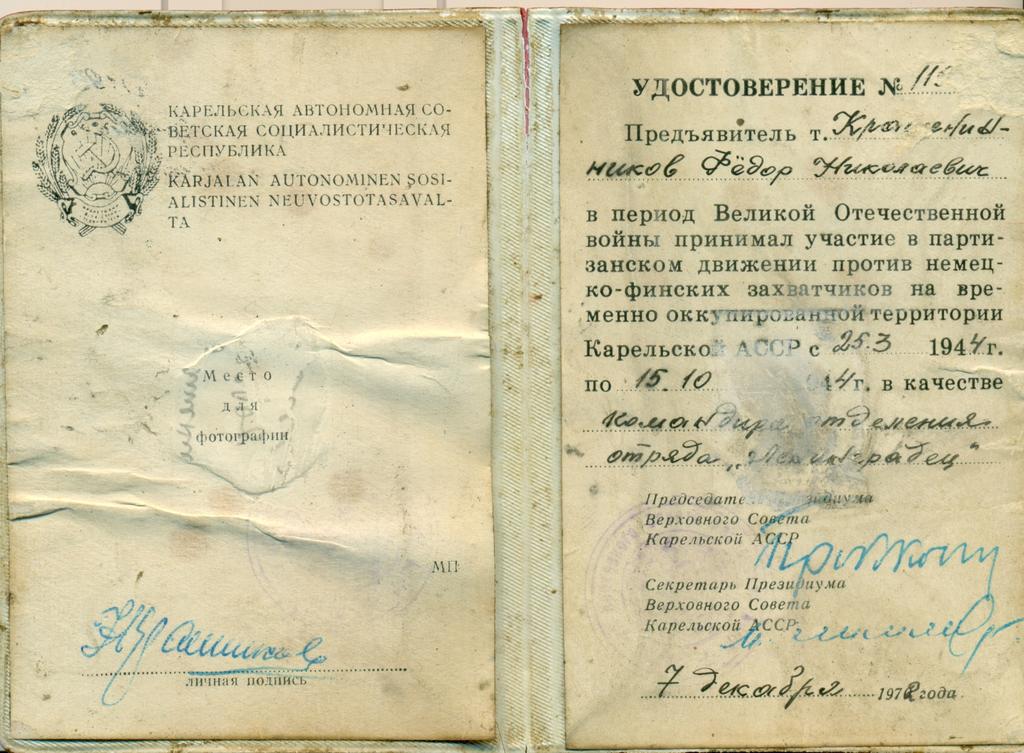 КАРЕЛЬСКАЯ АВТОНОМНАЯ СО-
ВЕТСКАЯ СОЦИАЛИСТИЧЕСКАЯ
РЕСПУБЛИКА
KARJALAN AUTONOMINEN SOSI-
ALISTINEN NEUVOSTOTASAVAL-
TA
Место
для
фотографии
МП
личная подпись
УДОСТОВЕРЕНИЕ №
Предъявитель т.
ников Фёдор Николаевич
в период Великой Отечественной
войны принимал участие в парти-
занском движении против немец-
ко-финских захватчиков на вре-
менно оккупированной территории
Карельской АССР с 25.3 1944г.
по 15.10 44г. в качестве
командира отделения
отряда „Ленинградец"
Председатель Президиума
Верховного Совета
Карельской АССР
Секретарь Президиума
Верховного Совета
Карельской АССР
7 декабря 1978 года